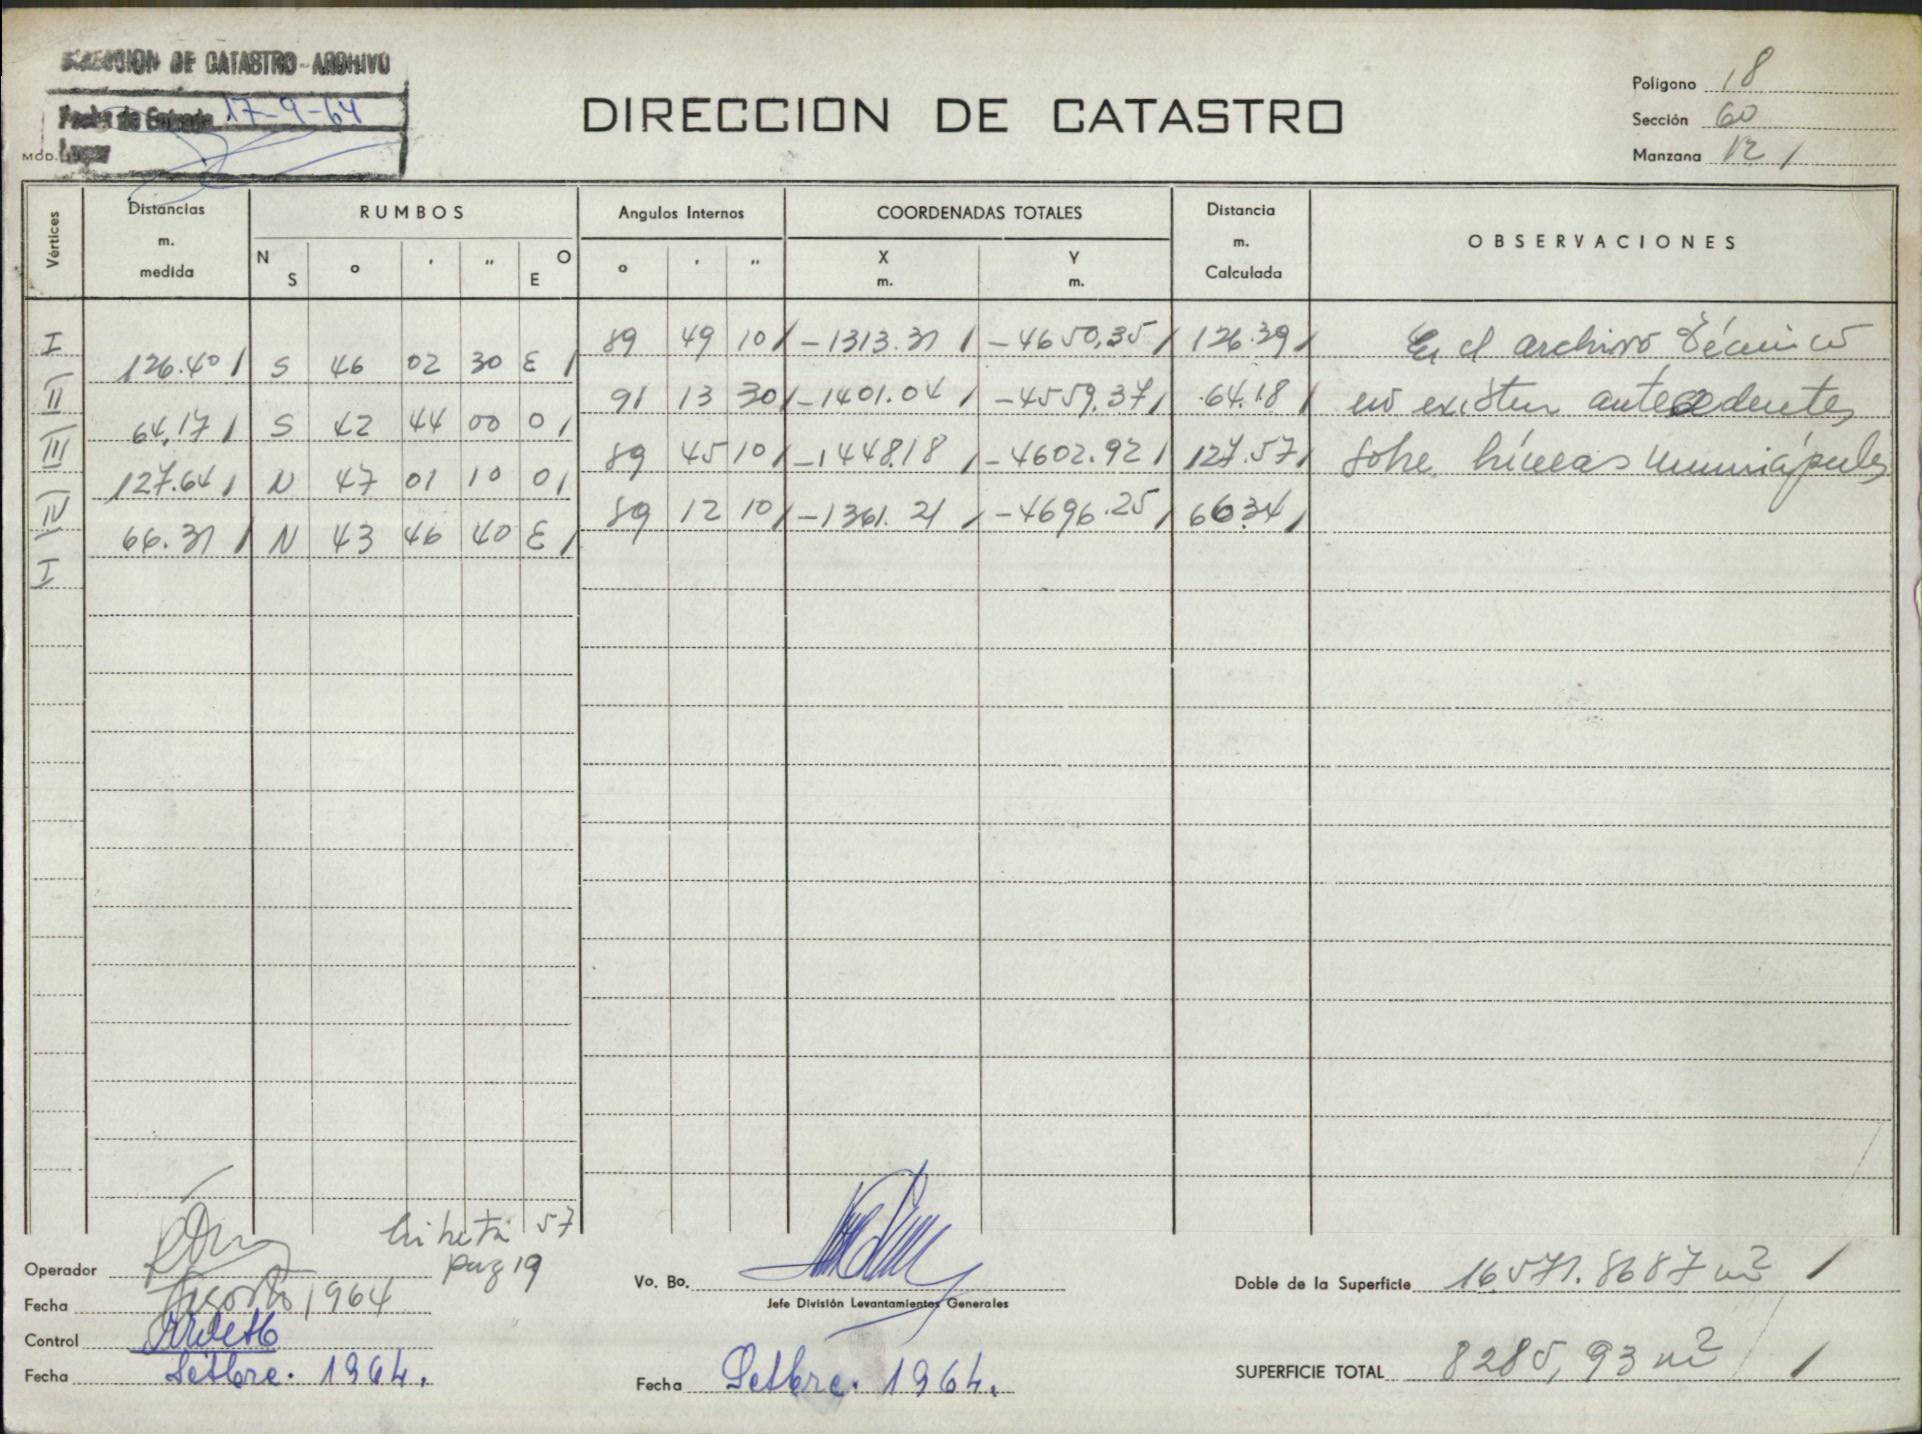 DIRECCION DE CATASTRO - ARCHIVO
Fecha de Entrada 17-9-64
Legajo
MOD.
DIRECCION DE CATASTRO
Polígono 18
Sección 60
Manzana 12 /
Vértices
Distancias m. medida
RUMBOS
N S ° ' " O E
Angulos Internos
° ' "
COORDENADAS TOTALES
X m. Y m.
Distancia m. Calculada
OBSERVACIONES
I 89 49 10 / -1313.31 / -4650.35 / 126.39 / En el archivo técnico
126.40 / S 46 02 30 E /
II 91 13 30 / -1401.04 / -4559.37 / 64.18 / no existen antecedentes
64,17 / S 42 44 00 O /
III 89 45 10 / -1448.18 / -4602.92 / 127.57 / sobre líneas municipales
127.64 / N 47 01 10 O /
IV 89 12 10 / -1361.21 / -4696.25 / 66.34 /
66.31 / N 43 46 40 E /
I
libreta 57
pag 19
Operador
Fecha Agosto 1964
Control
Fecha Setbre. 1964.
Vo. Bo.
Jefe División Levantamientos Generales
Fecha Setbre. 1964.
Doble de la Superficie 16.571.8687 m² /
SUPERFICIE TOTAL 8285,93 m² /